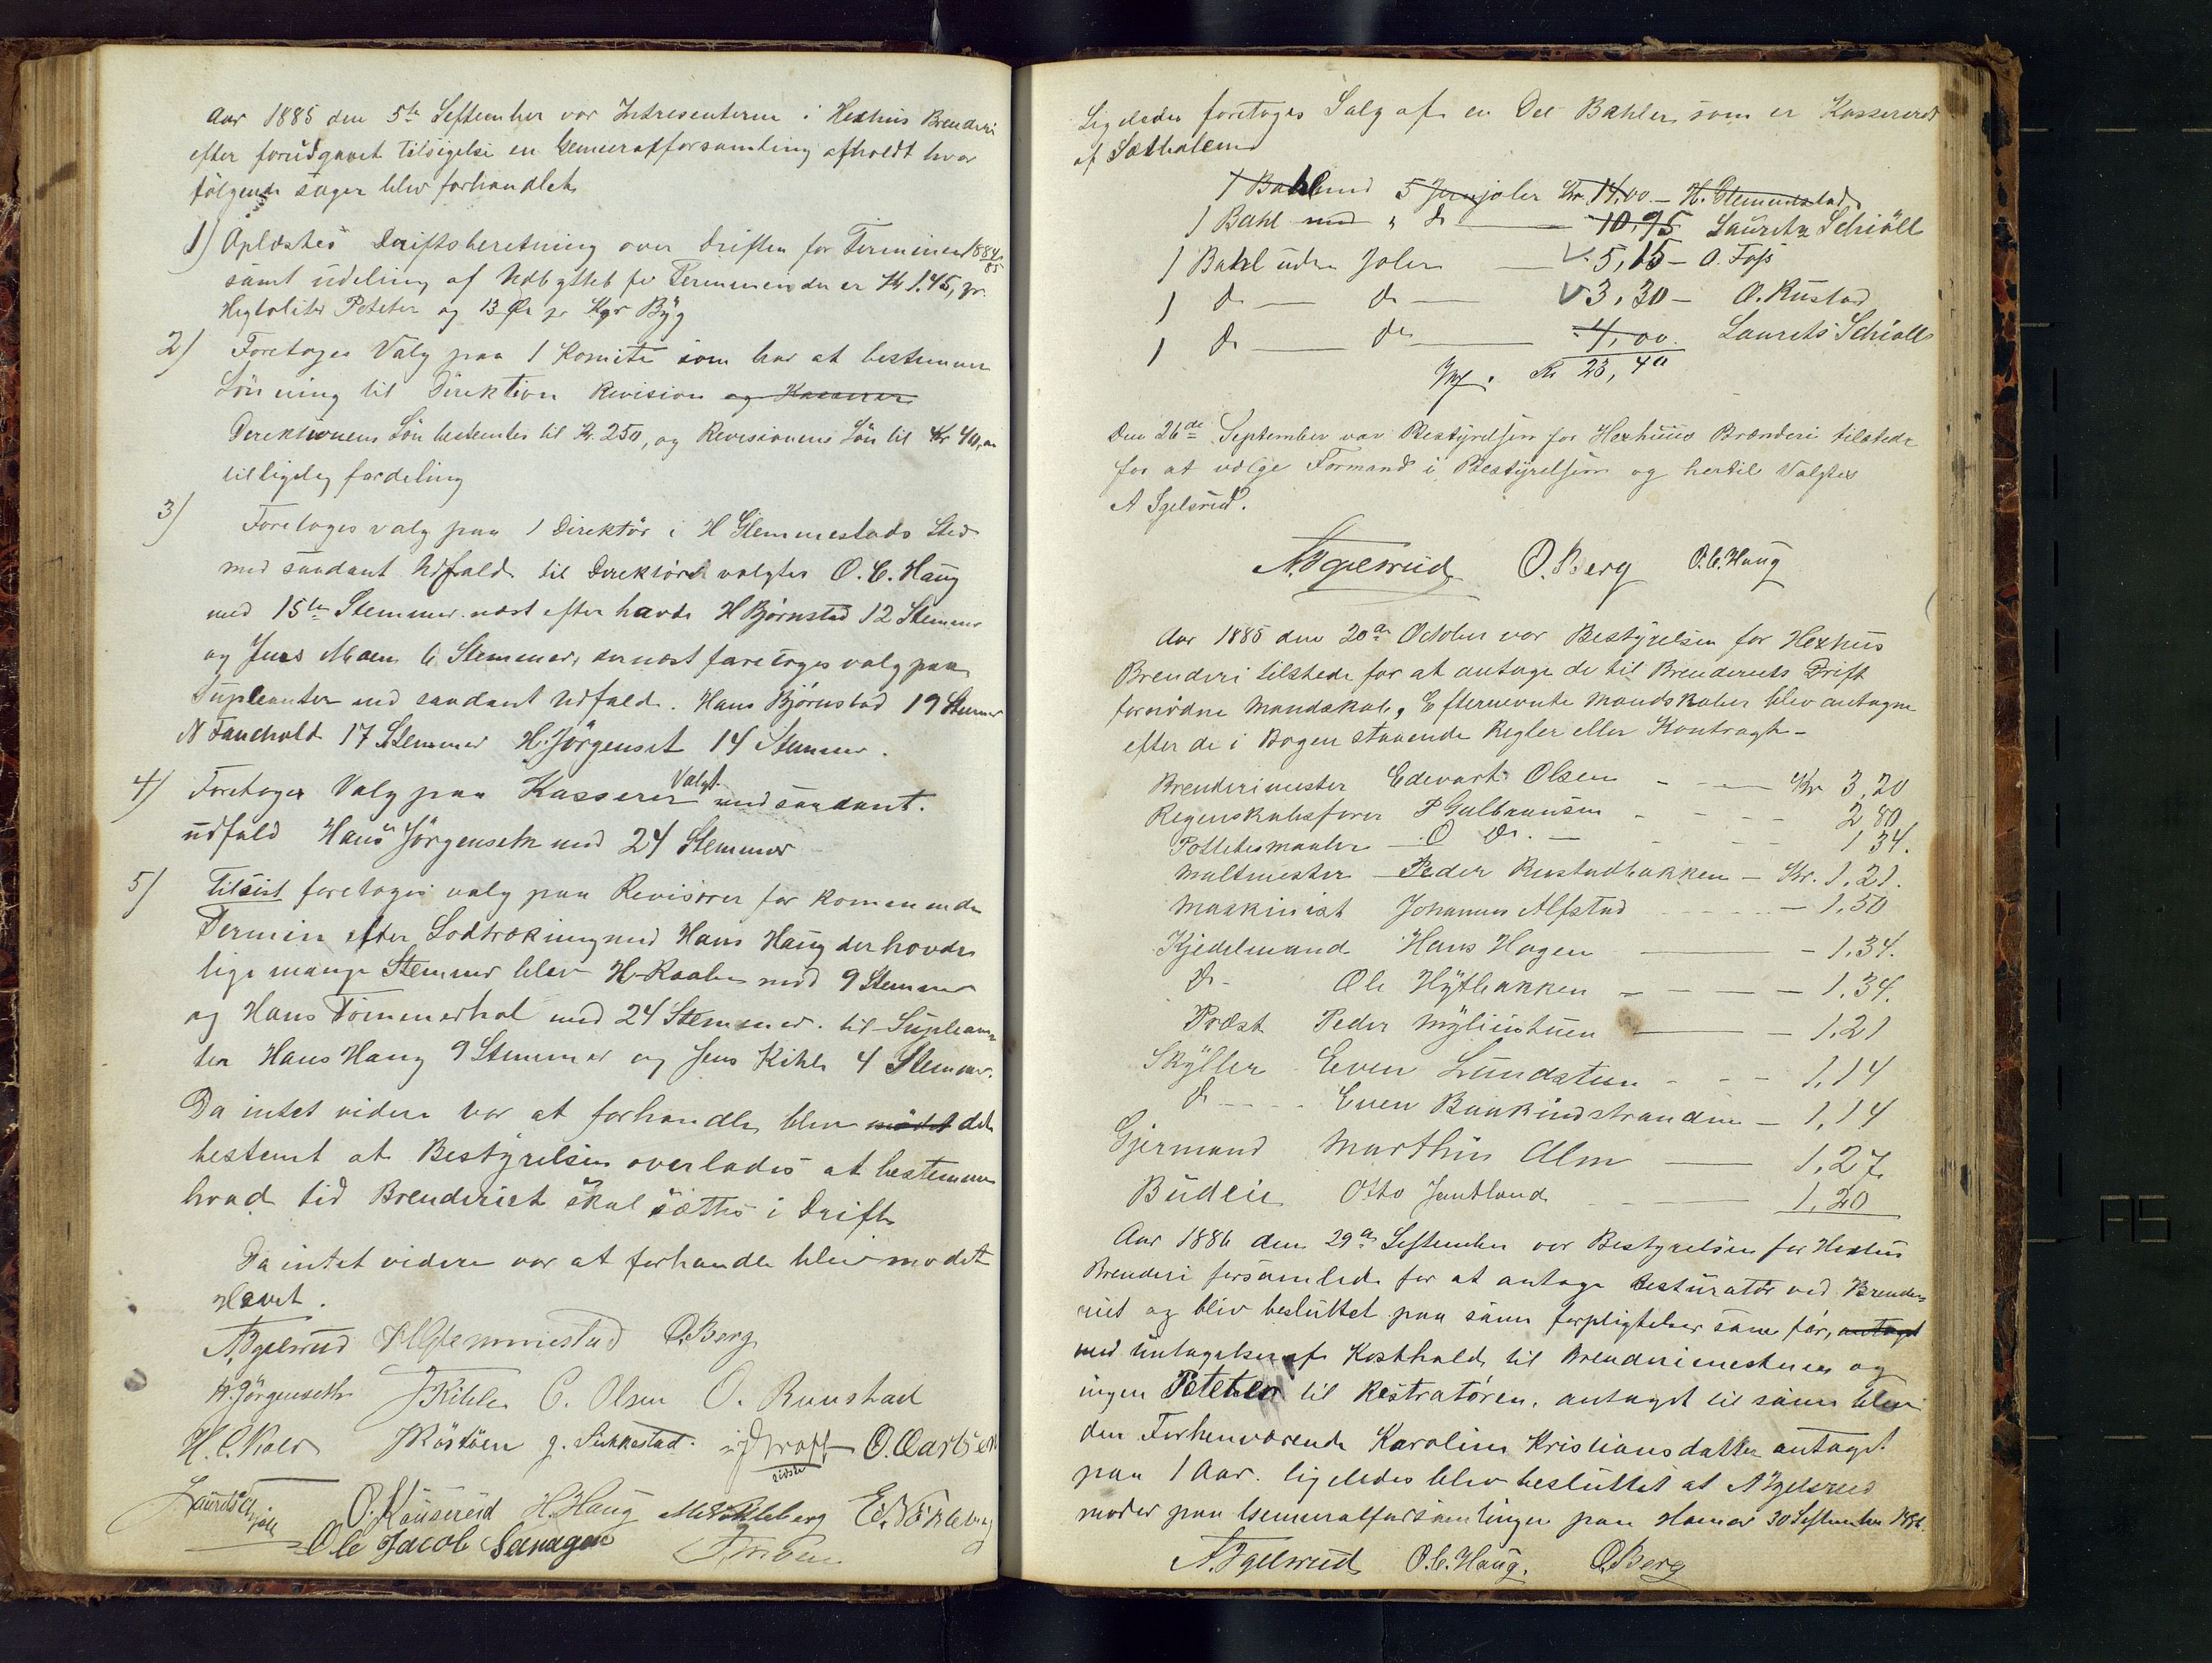 Aar 1885 den 5te September var Intresenterne i Hexhus Brenderi
efter forudgaaet tilsigelse en Generalforsamling afholdt hvor
følgende sager blev forhandlet
1) Oplæstes Driftsberetning over driften for Terminen 1884/85
samt udeling af Udbyttet for Terminen der er Kr 1.45, pr.
Hegtoliter Peteter og 13 Øre pr Kgr Byg
2) Foretoges Valg paa 1 Komite som har at bestemme
Lønning til Direktion Revision og Kasserer
Derektionens Løn bestemtes til Kr. 250, og Revisionens Løn til Kr 40,00
til ligelig fordeling
3) Foretoges valg paa 1 Direktør i H Glemmestads Sted
med saadant Udfald til Derektør valgtes O. C. Haug
med 15ten Stemmer næst efter havde H Bjørnstad 12 Stemmer
og Jens Moen 6 Stemmer, dernæst foretoges valg paa
Supleanter med saadant Udfald. Hans Bjørnstad 19 Stemmer
N Fauchold 17 Stemmer H. Jørgenset 14 Stemmer.
4) Foretoges Valg paa Kasserer Valgt med saadant.
udfald Hans Jørgenseth med 24 Stemmer
5) Tilsist foretoges valg paa Revisorer for kommende
Termin efter Lodtrækning med Hans Haug der havde
lige mange Stemmer blev H Raaben med 9 Stemmer
og Hans Tømmerhol med 24 Stemmer. til Suplean-
ter Hans Haug 9 Stemmer og Jens Kihle 4 Stemmer.
Da intet videre var at forhandle blev mødet det
bestemt at Bestyrelsen overlades at bestemme
hvad tid Brenderiet skal sættes i Drift
Da intet videre var at forhandle blev modet
Hævet.
A. Igelsrud H Glemmestad O. Berg
H. Jørgenseth J Kihle C. Olsen O. Ruustad
H. C. Kolv J Røstøen J. Sukkestad. O. Carlsen
Laurits Schjøll O. Kauserud H. Haug M Søkleberg E. Nøkleby
Ole Jacob Sanagen J Moen
Ligeledes foretoges Salg af en Del Bahler som er Kassererdt
af Satbalerne
1 Bahl med 5 Jernjoler Kr. 14,00 - H. Glemmestad
1 Bahl med " do - 10,95 Lauritz Schiøll
1 Bahl uden Joler - 5,15 - O. Foss
1 do - do - 3,30 - O. Rustad
1 do - do - 4,00. Laurits Schiøll
Kr 23,40
Den 26de September var Bestyrelsen for Hexhuus Brænderi tilstede
for at vælge Formand i Bestyrelsen og hertil Valgtes
A Igelsrud.
A. Igelsrud O. Berg O. C. Haug
Aar 1885 den 20de October var Bestyrelsen for Hexhus
Brenderi tilstede for at antage de til Brenderiets Drift
fornødne Mandskab, Efternevnte Mandskaber blev antagne
efter de i Bogen staaende Regler eller Kontragt -
Brenderimester Edevart Olsen - - - Kr 3,20
Regenskabsfører P Gulbransen - - - - 2 80
Pottetesmaaler - O Do. - - - - 1 34.
Maltmester - Peder Rustadbakken - Kr. 1.21.
Maskinist Johannes Alfstad - - - - 1,50
Kjedelmand Hans Hagen - - 1.34.
Do - Ole Hytbakken - - - - 1.34.
Præst Peder Myliustuen - - 1,21
Skyller Even Lundstuen - - - 1,14
Do - - Even Baukindstranden - 1,14
Gjermand Marthin Alm - 1,27
Budeie Otto Jentland - 1,20
Aar 1886 den 29de September var Bestyrelsen for Hexhus
Brenderi forsamlede for at antage Resturatør ved Brende-
riet og blev besluttet paa samme forpligtelser som før, antaget
med untagelse af Kosthold til Brenderimesteren og
ingen Peteter til Restratøren, antaget til samme blev
den Forhenværende Karoline Kristiansdatter antaget
paa 1 Aar. ligeledes blev besluttet at A Igelsrud
møder paa Generalforsamlingen paa Hamar 30 September 1886.
A. Igelsrud O. C. Haug. O. Berg